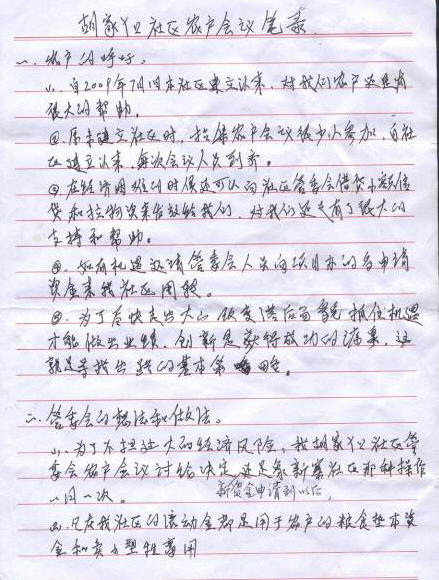 胡家丫口社区农户会议笔录
一、农户的呼吁。
⑴、自2009年7月1日本社区建立以来，对我们农户还是有
很大的帮助。
②、原未建立社区时，招集农户会议很少人参加，自社
区建立以来，每次会议人员到齐。
③、在经济困难的时候还可以向社区管委会借贷小额信
贷和拉物资来发放给我们，对我们这是有了很大的
支持和帮助。
④、如有机遇还请管委会人员向项目办的多申请
资金来我社区用投。
⑤、为了尽快走出大山，改变落后面貌，抓住机遇
才能做出业绩，创新是获得成功的源泉，这
就是寻找出路的基本策略。
二、管委会的想法和做法。
⑴、为了不担过大的经济风险，我胡家丫口社区管
委会农户会议讨论决定还是象新寨社区那种操作
一日一次。
新资金申请到以后，
⑵、凡在我社区的流动金都是用于农户的粮食垫本资
金和卖小型牲畜用